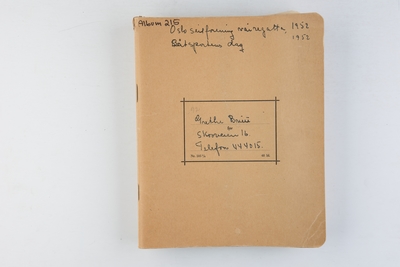 Album 215
Oslo seilforening vårregatta 1952
Båtsportens dag 1952
Grethe
Skovveien 16
Telefon 444015